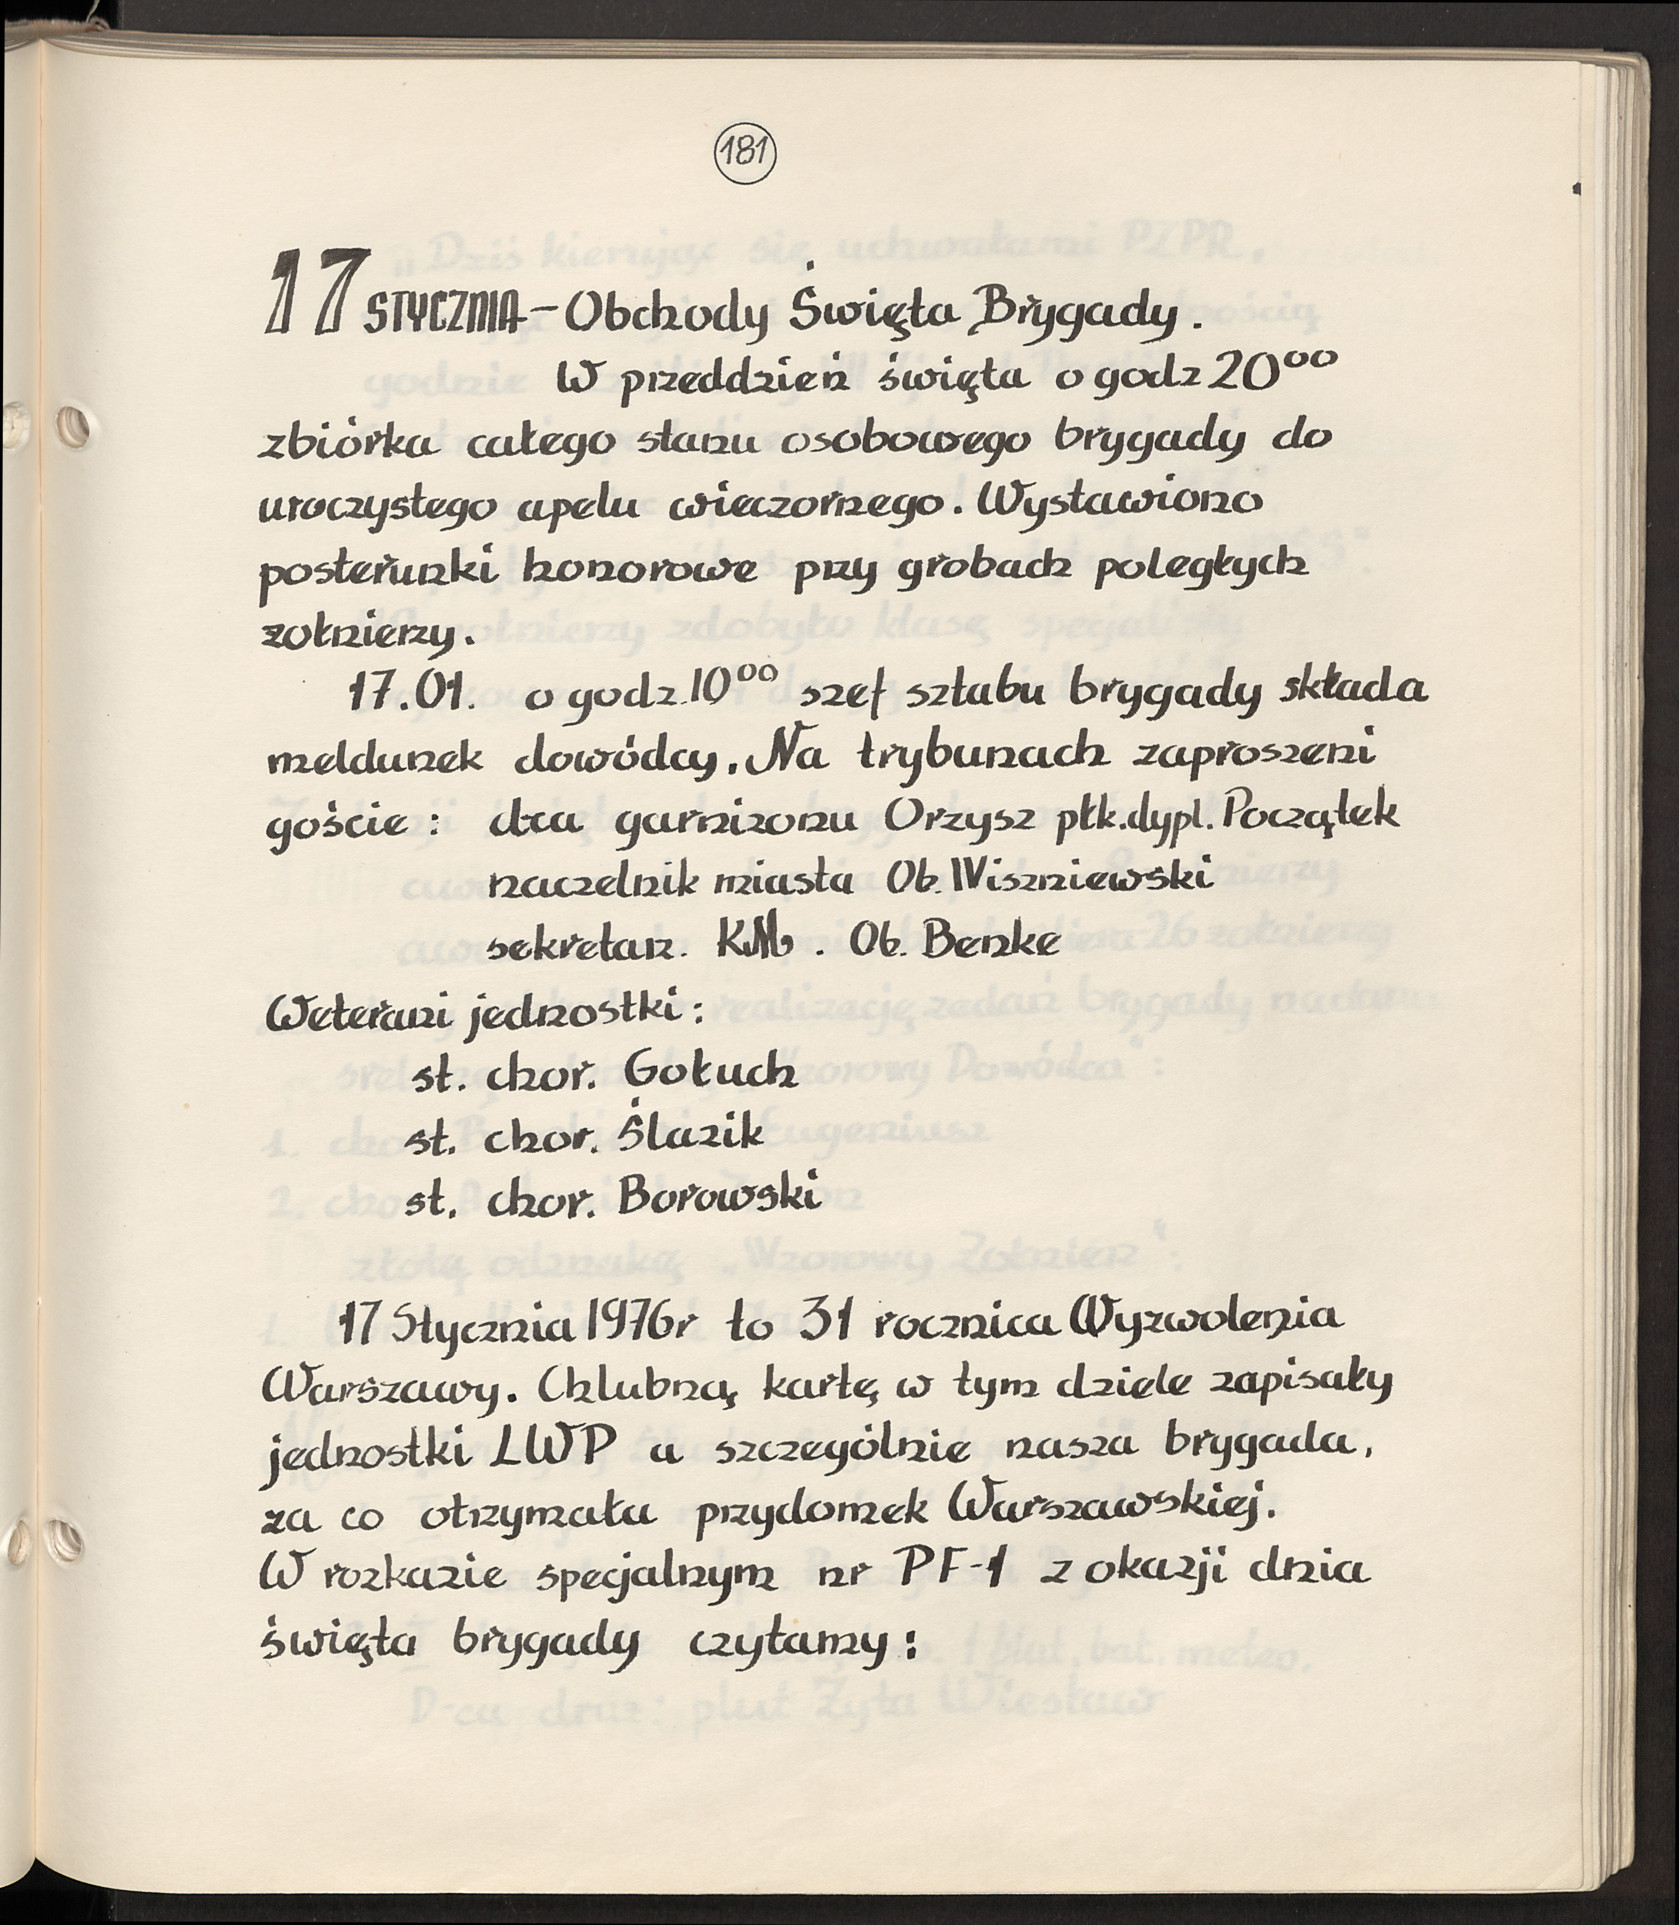 181
17 STYCZNIA – Obchody Święta Brygady.
W przeddzień święta o godz 20⁰⁰
zbiórka całego stanu osobowego brygady do
uroczystego apelu wieczornego. Wystawiono
posterunki honorowe przy grobach poległych
żołnierzy.
17.01. o godz. 10⁰⁰ szef sztabu brygady składa
meldunek dowódcy. Na trybunach zaproszeni
goście: dca garnizonu Orzysz płk.dypl. Początek
naczelnik miasta Ob. Wiszniewski
sekretarz. KM. Ob. Benke
Weterani jednostki:
st. chor. Gołuch
st. chor. Ślazik
st. chor. Borowski
17 Stycznia 1976r to 31 rocznica Wyzwolenia
Warszawy. Chlubną kartę w tym dziele zapisały
jednostki LWP a szczególnie nasza brygada,
za co otrzymała przydomek Warszawskiej.
W rozkazie specjalnym nr PF-1 z okazji dnia
święta brygady czytamy: